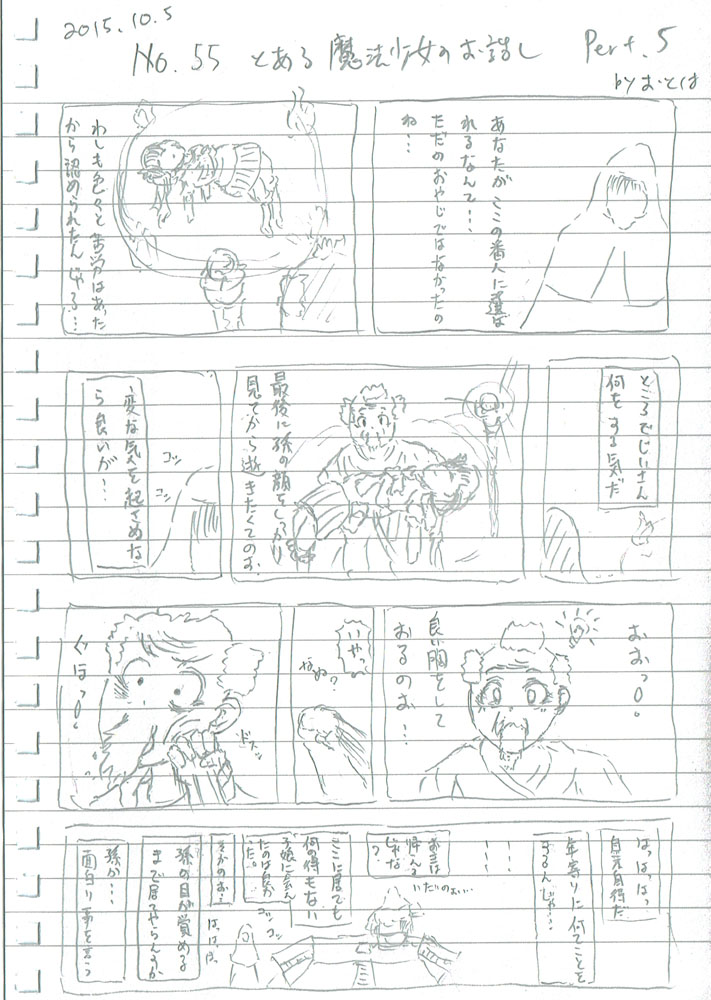 2015.10.5
No.55 とある魔法少女のお話し Part.5
by おとは
あなたがここの番人に選ば
れるなんて…
ただのおやじではなかったの
ね…
わしも色々と苦労はあった
から認められたんじゃろ…
ところでじいさん
何をする気だ
最後に孫の顔をしっかり
見てから逝きたくてのお
変な気を起さめな
ら良いが…
コッ
コッ
おおっ○。
良い胸をして
おるのお…
いやっ
なぬ?
ドスッ
ぐはっ○。
はっはっはっ
自元自得だ
年寄りに何てことを
するんじゃ…
いだのぉ…
ここに居ても
何の得もない
そかのお…
は、はは、
コッ
コッ
孫の目が覚める
まで居てやらんすか
孫か…
面白い事を言う